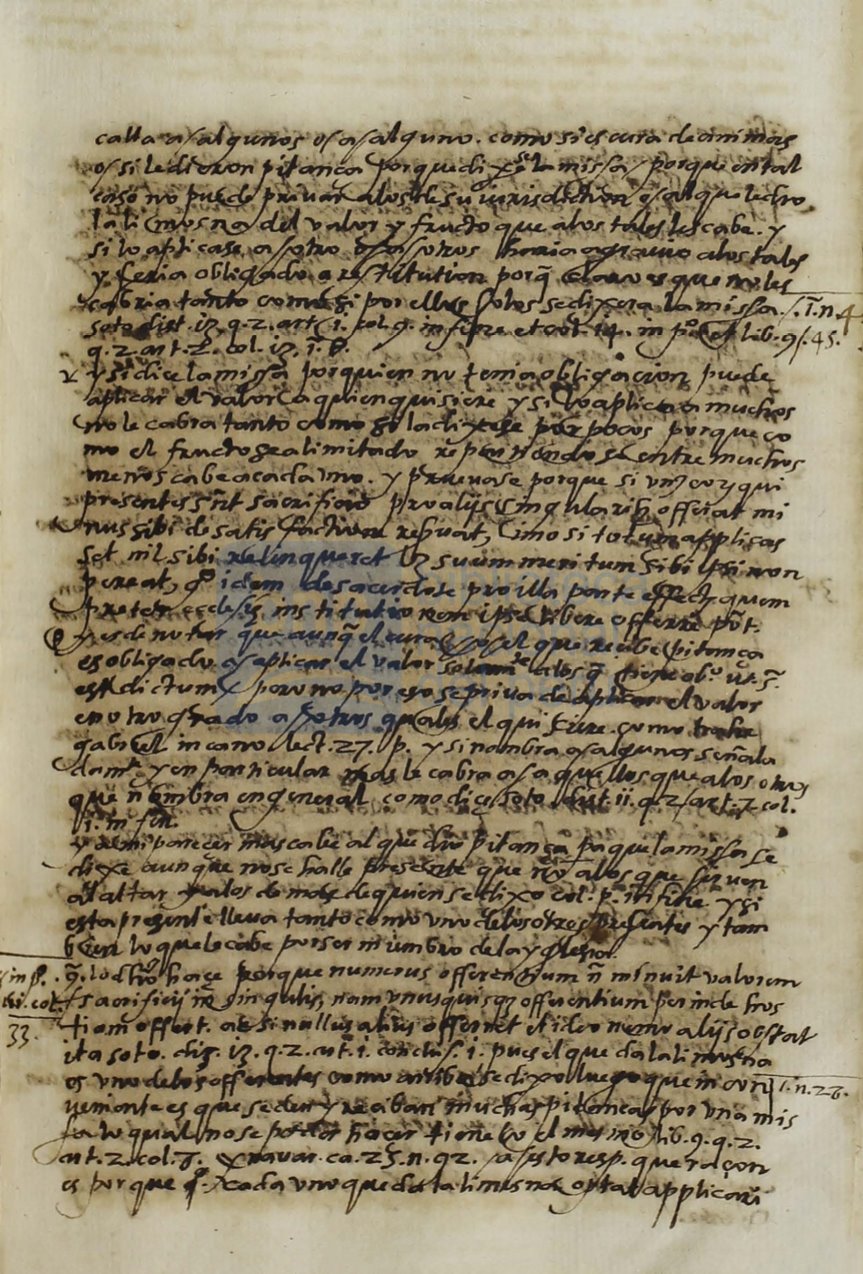 calla a algunos o a alguno. como si es cura de animas
o si le dieron pitança porque dixese la missa, porque en tal
caso no puede privar a los de su iurisdiction o al que le dio
la limosna del valor y fructo que a los tales les cabe. y
si lo aplicase a otro o a otros haria agravio a los tales
y seria obligado a restitution porq̃ claro es que no les
cabria tanto como si por ellos solos se dixera la missa.
soto dist. 13. q. 2. art. 1. col. 9. in fine et col. 14. in p.º lib. 9.
q. 2. art. 2. col. 13.
y si dice la missa por quien no tenia obligacion, puede
aplicar el valor a quien quisiere y si lo aplica a muchos
no le cabra tanto como si la dixese por pocos porque co
mo el fructo sea limitado repartiendose entre muchos
menos cabe a cada uno. y pruevase porque si unusquisq
presentes sacrificio pro alijs singularibꝫ offerat mi
nus sibi de satisfaction reservat, imo si totum applicas
set nil sibi relinqueret suum meritum sibi ipsi non
pereat, idem de sacerdote pro illa parte effectꝫ quem
preter ecclesiæ institutionem ipse libere offerre põt.
y es de notar que aunq̃ el cura o el que recibe pitança
es obligado a aplicar el valor solamte a los q̃ tiene obl.º ut s.
est dictum, pero no por eso se priva de aplicar el valor
en otro grado a otros qualis el qui fiere como trahe
gabriel in cano lect. 27. p. y si nombra a algunos señala
damte y en particular mas le cabra a aquellos que a los otros
que nombra en general como dice soto dist. 11. q. 2. art. 7. col.
1. in fin.
y a mi parecer mas cabe al que dio pitança pa que la missa se
dixe aunque no se halle presente que no a los que sirven
al altar y a los demas de quien se dixo col. p.ª in fine y si
esta presente lleva tanto como uno de los otros presentes y tam
bien lo que le cabe por ser miembro de la yglesia.
q̃. lo dho haçe porque numerus offerentium ñ minuit valorem
sacrificij in singulis, nam unusquisqꝫ offerentium perinde hos
tiam offert. ac si nullus alius offerret et ideo nemo alijs obstat
ita soto. dis. 13. q. 2. art. 1. conclus. 1. pues el que da la limosna
es uno de los offerentes como arriba se dixo luego que incon
veniente es que se den y reciban muchas pitanças por una mis
sa lo qual no se poder hacer tiene lo el mismo lib. 9. q. 2.
art. 2. col. 7. y navar. ca. 25. n. 92. a esto resp. que raçon
es porque cada uno que da la limosna optat applicari
s. 1. n. 4
in p.
col.
33
1. n. 28.